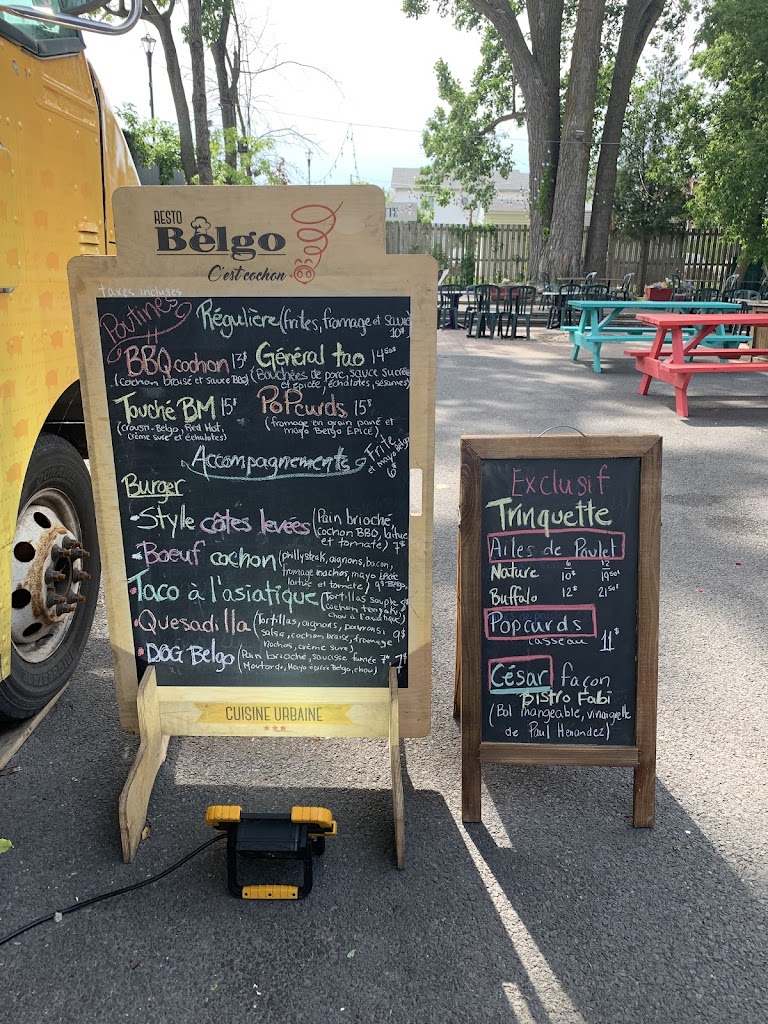 RESTO
Belgo
C'est cochon
taxes incluses
Poutines
Régulière (frites, fromage et sauce)
10$
BBQ cochon 13$
(cochon braisé et sauce BBQ)
Général tao 14 50$
(Bouchées de porc, sauce sucrée
et épicée, échalotes, sésames)
Touché BM 15$
(crousti-Belgo, Red Hot,
crème sure et échalotes)
PoPcurds 15$
(fromage en grain pané et
mayo Belgo ÉPICÉ)
Accompagnements
Frite
et mayo Belgo
6$
Burger
-Style côtes levées (Pain brioché,
cochon BBQ, laitue
et tomate) 7$
-Bœuf cochon (phillysteak, oignons, bacon,
fromage nachos, mayo
laitue et tomate) 9$
Taco à l'asiatique (Tortillas souple,
cochon
chou à l'asiatique)
-Quesadilla (Tortillas, oignons, poivrons,
salsa, cochon braisé, fromage 9$
Nachos, crème sure)
-DOG Belgo (Pain brioché, saucisse fumée 7$
Moutarde, Mayo épicée Belgo, chou)
CUISINE URBAINE
Exclusif
Trinquette
Ailes de Poulet
6 12
Nature 10$ 19 50$
Buffalo 12$ 21 50$
Popcurds
casseau 11$
César façon
bistro Fabi
(Bol mangeable, vinaigrette
de Paul Henandez)